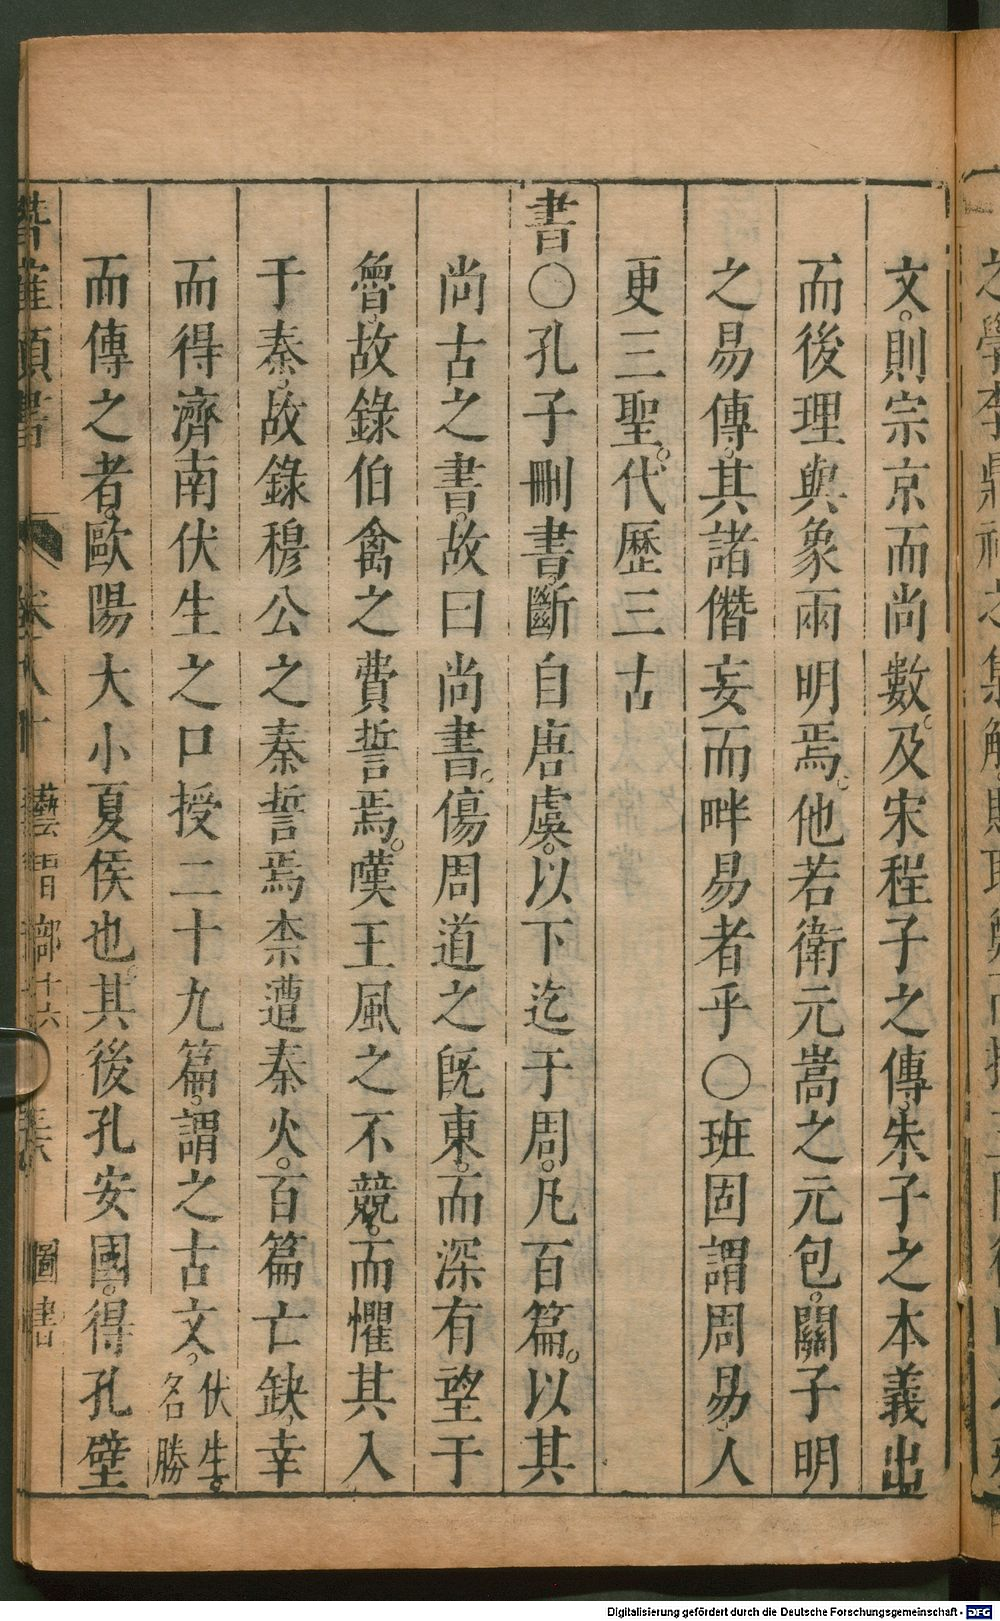 文。則宗京而尚數。及宋程子之傳。朱子之本義出
而後理與象兩明焉。他若衛元嵩之元包。關子明
之易傳。其諸僭妄而畔易者乎○班固謂周易。人
更三聖。代歷三古
書○孔子刪書。斷自唐虞。以下迄于周。凡百篇。以其
尚古之書。故曰尚書。傷周道之旣東。而深有望于
魯。故錄伯禽之費誓焉。嘆王風之不競。而懼其入
于秦。故錄穆公之秦誓焉柰遭秦火。百篇亡缺。幸
而得濟南伏生之口授二十九篇。謂之古文。伏生。名勝
而傳之者。歐陽大小夏侯也。其後孔安國。得孔壁
卷八十 藝習部十六 圖書
Digitalisierung gefördert durch die Deutsche Forschungsgemeinschaft - DFG